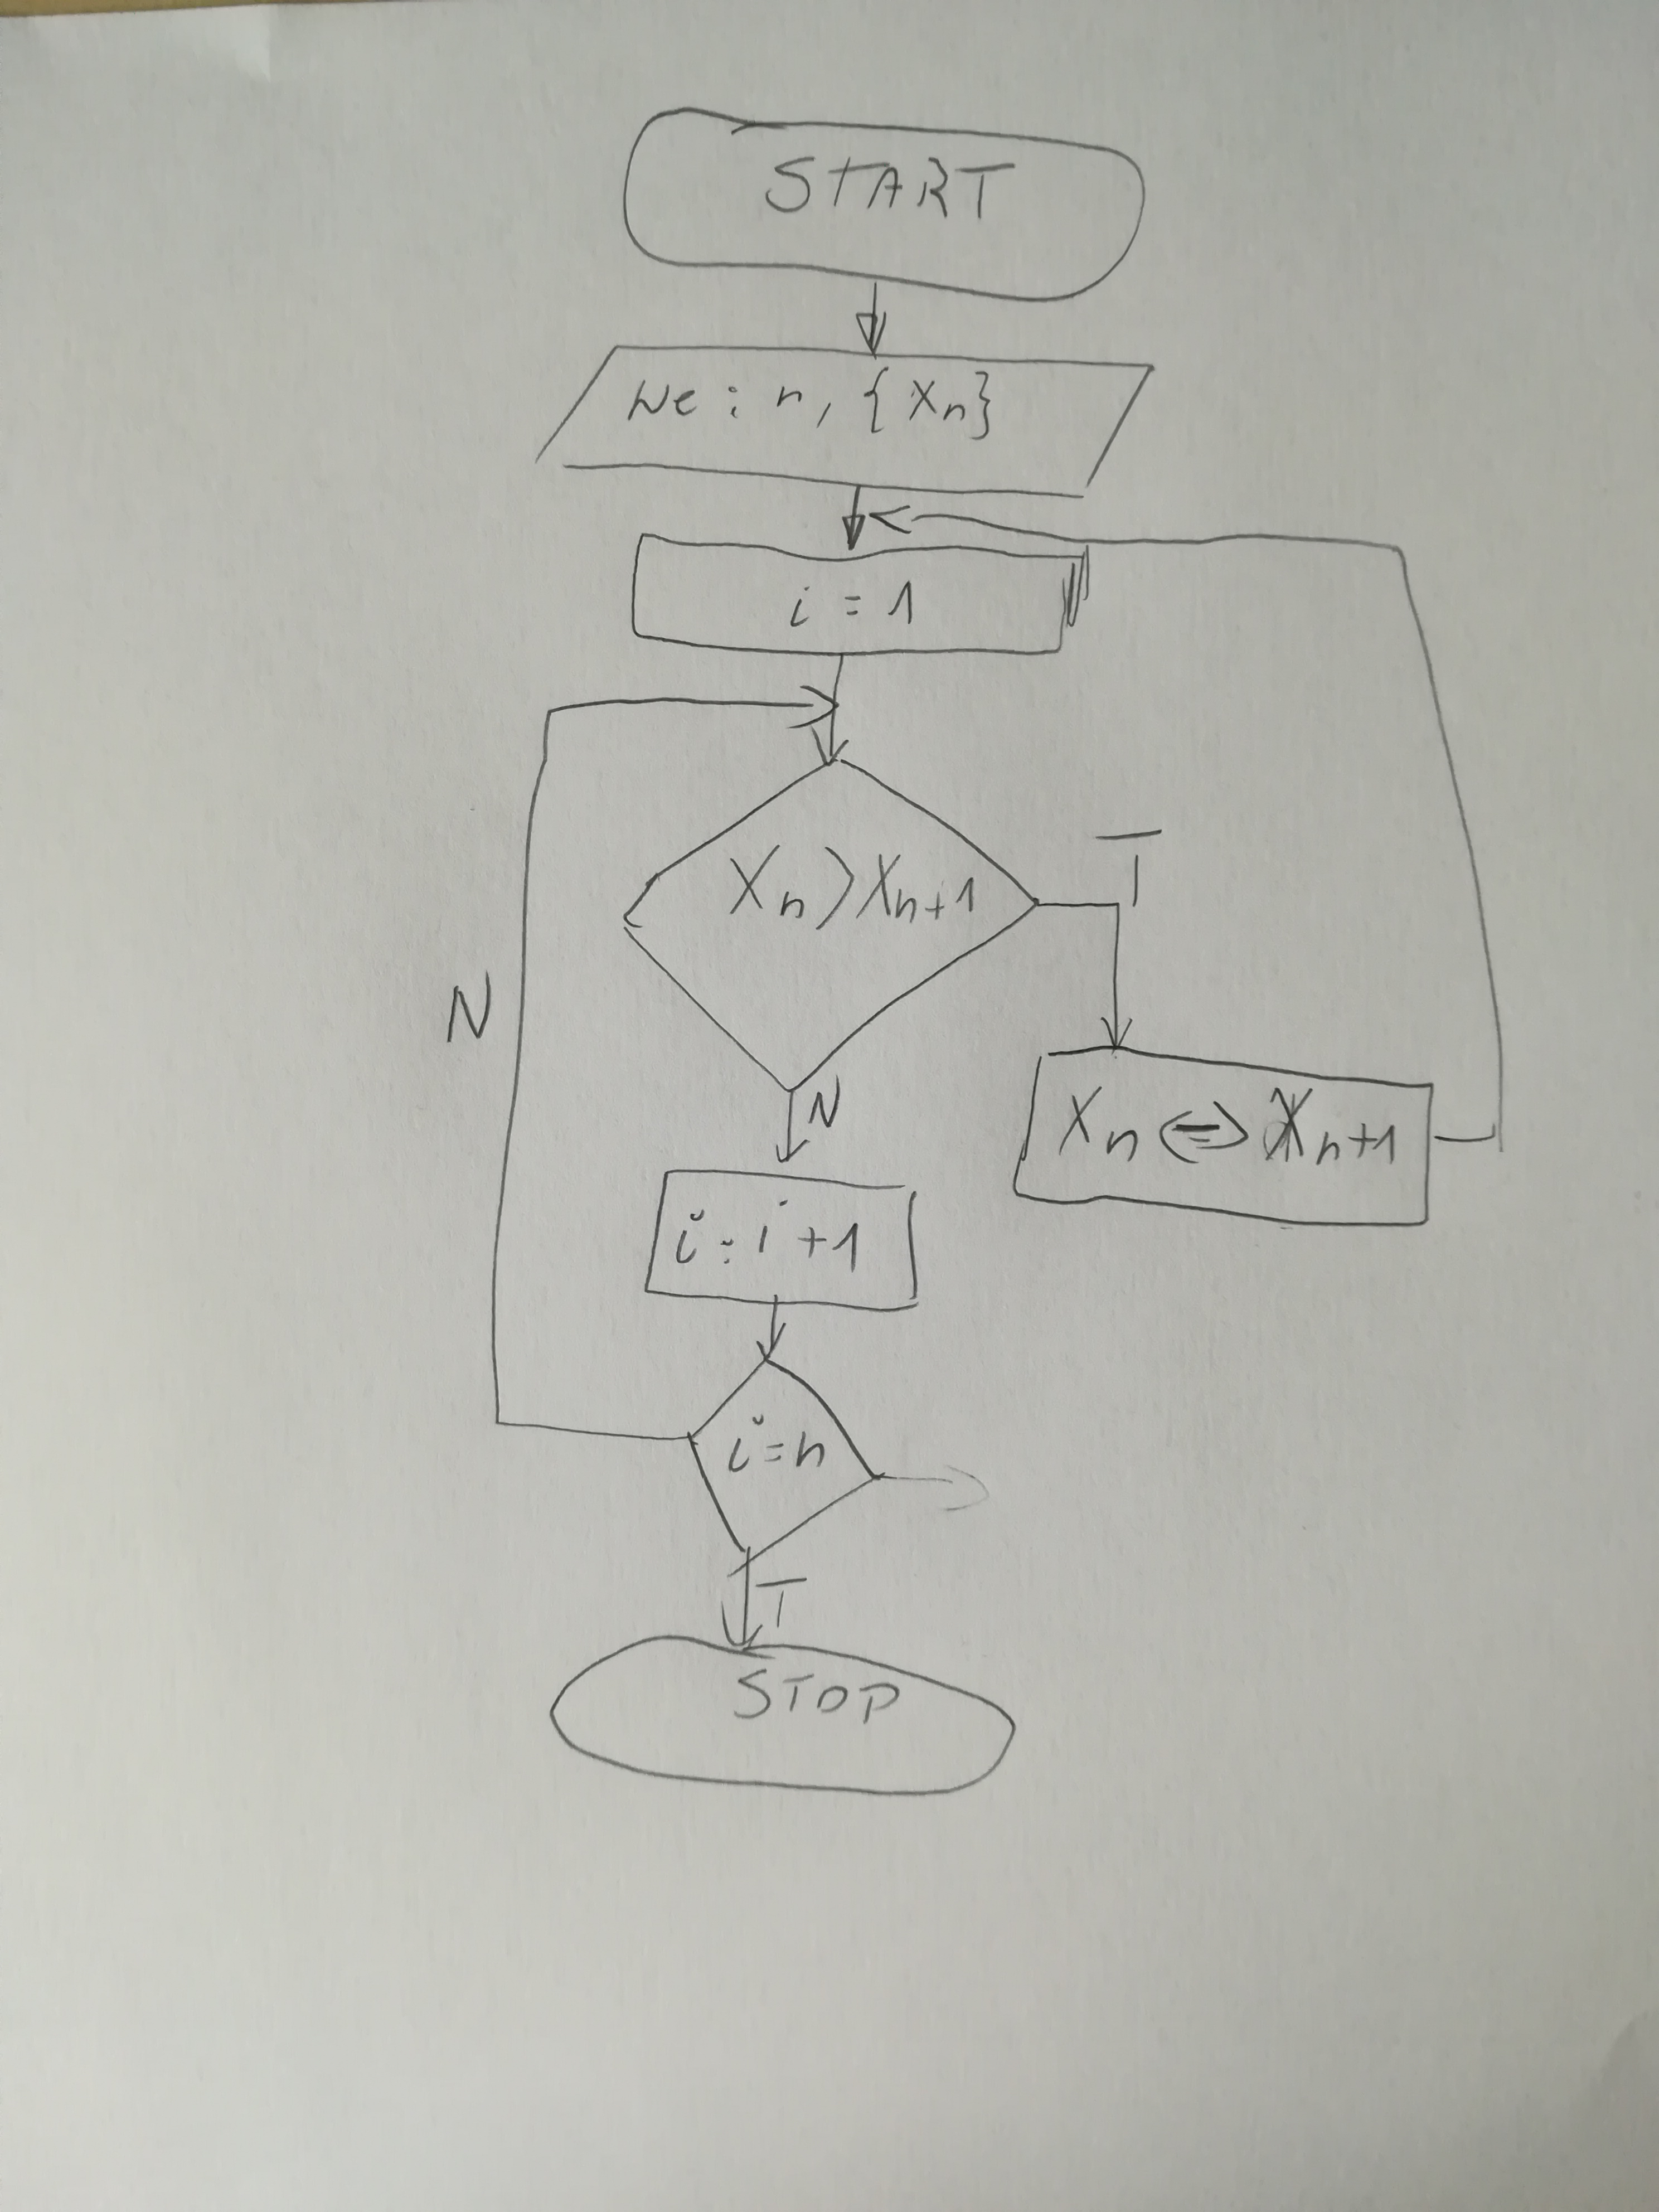 START
We : n, {Xn}
i = 1
Xn > Xn+1
T
N
N
Xn ⇔ Xn+1
i = i + 1
i = n
T
STOP